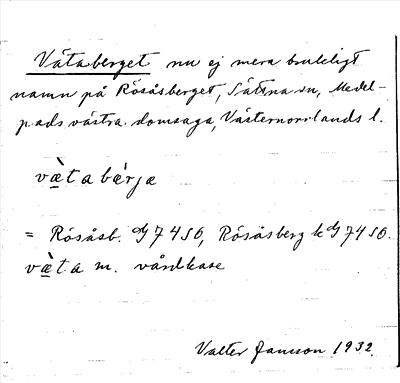 Våtaberget nu ej mera brukligt
namn på Rösåsberget, Sättna sn, Medel-
pads västra domsaga, Västernorrlands l.
væ̀tabǽrja
= Rösåsb. G 7450, Rösåsberg k G 7450.
væ̀ta m. vårdkase
Valter Jansson 1932